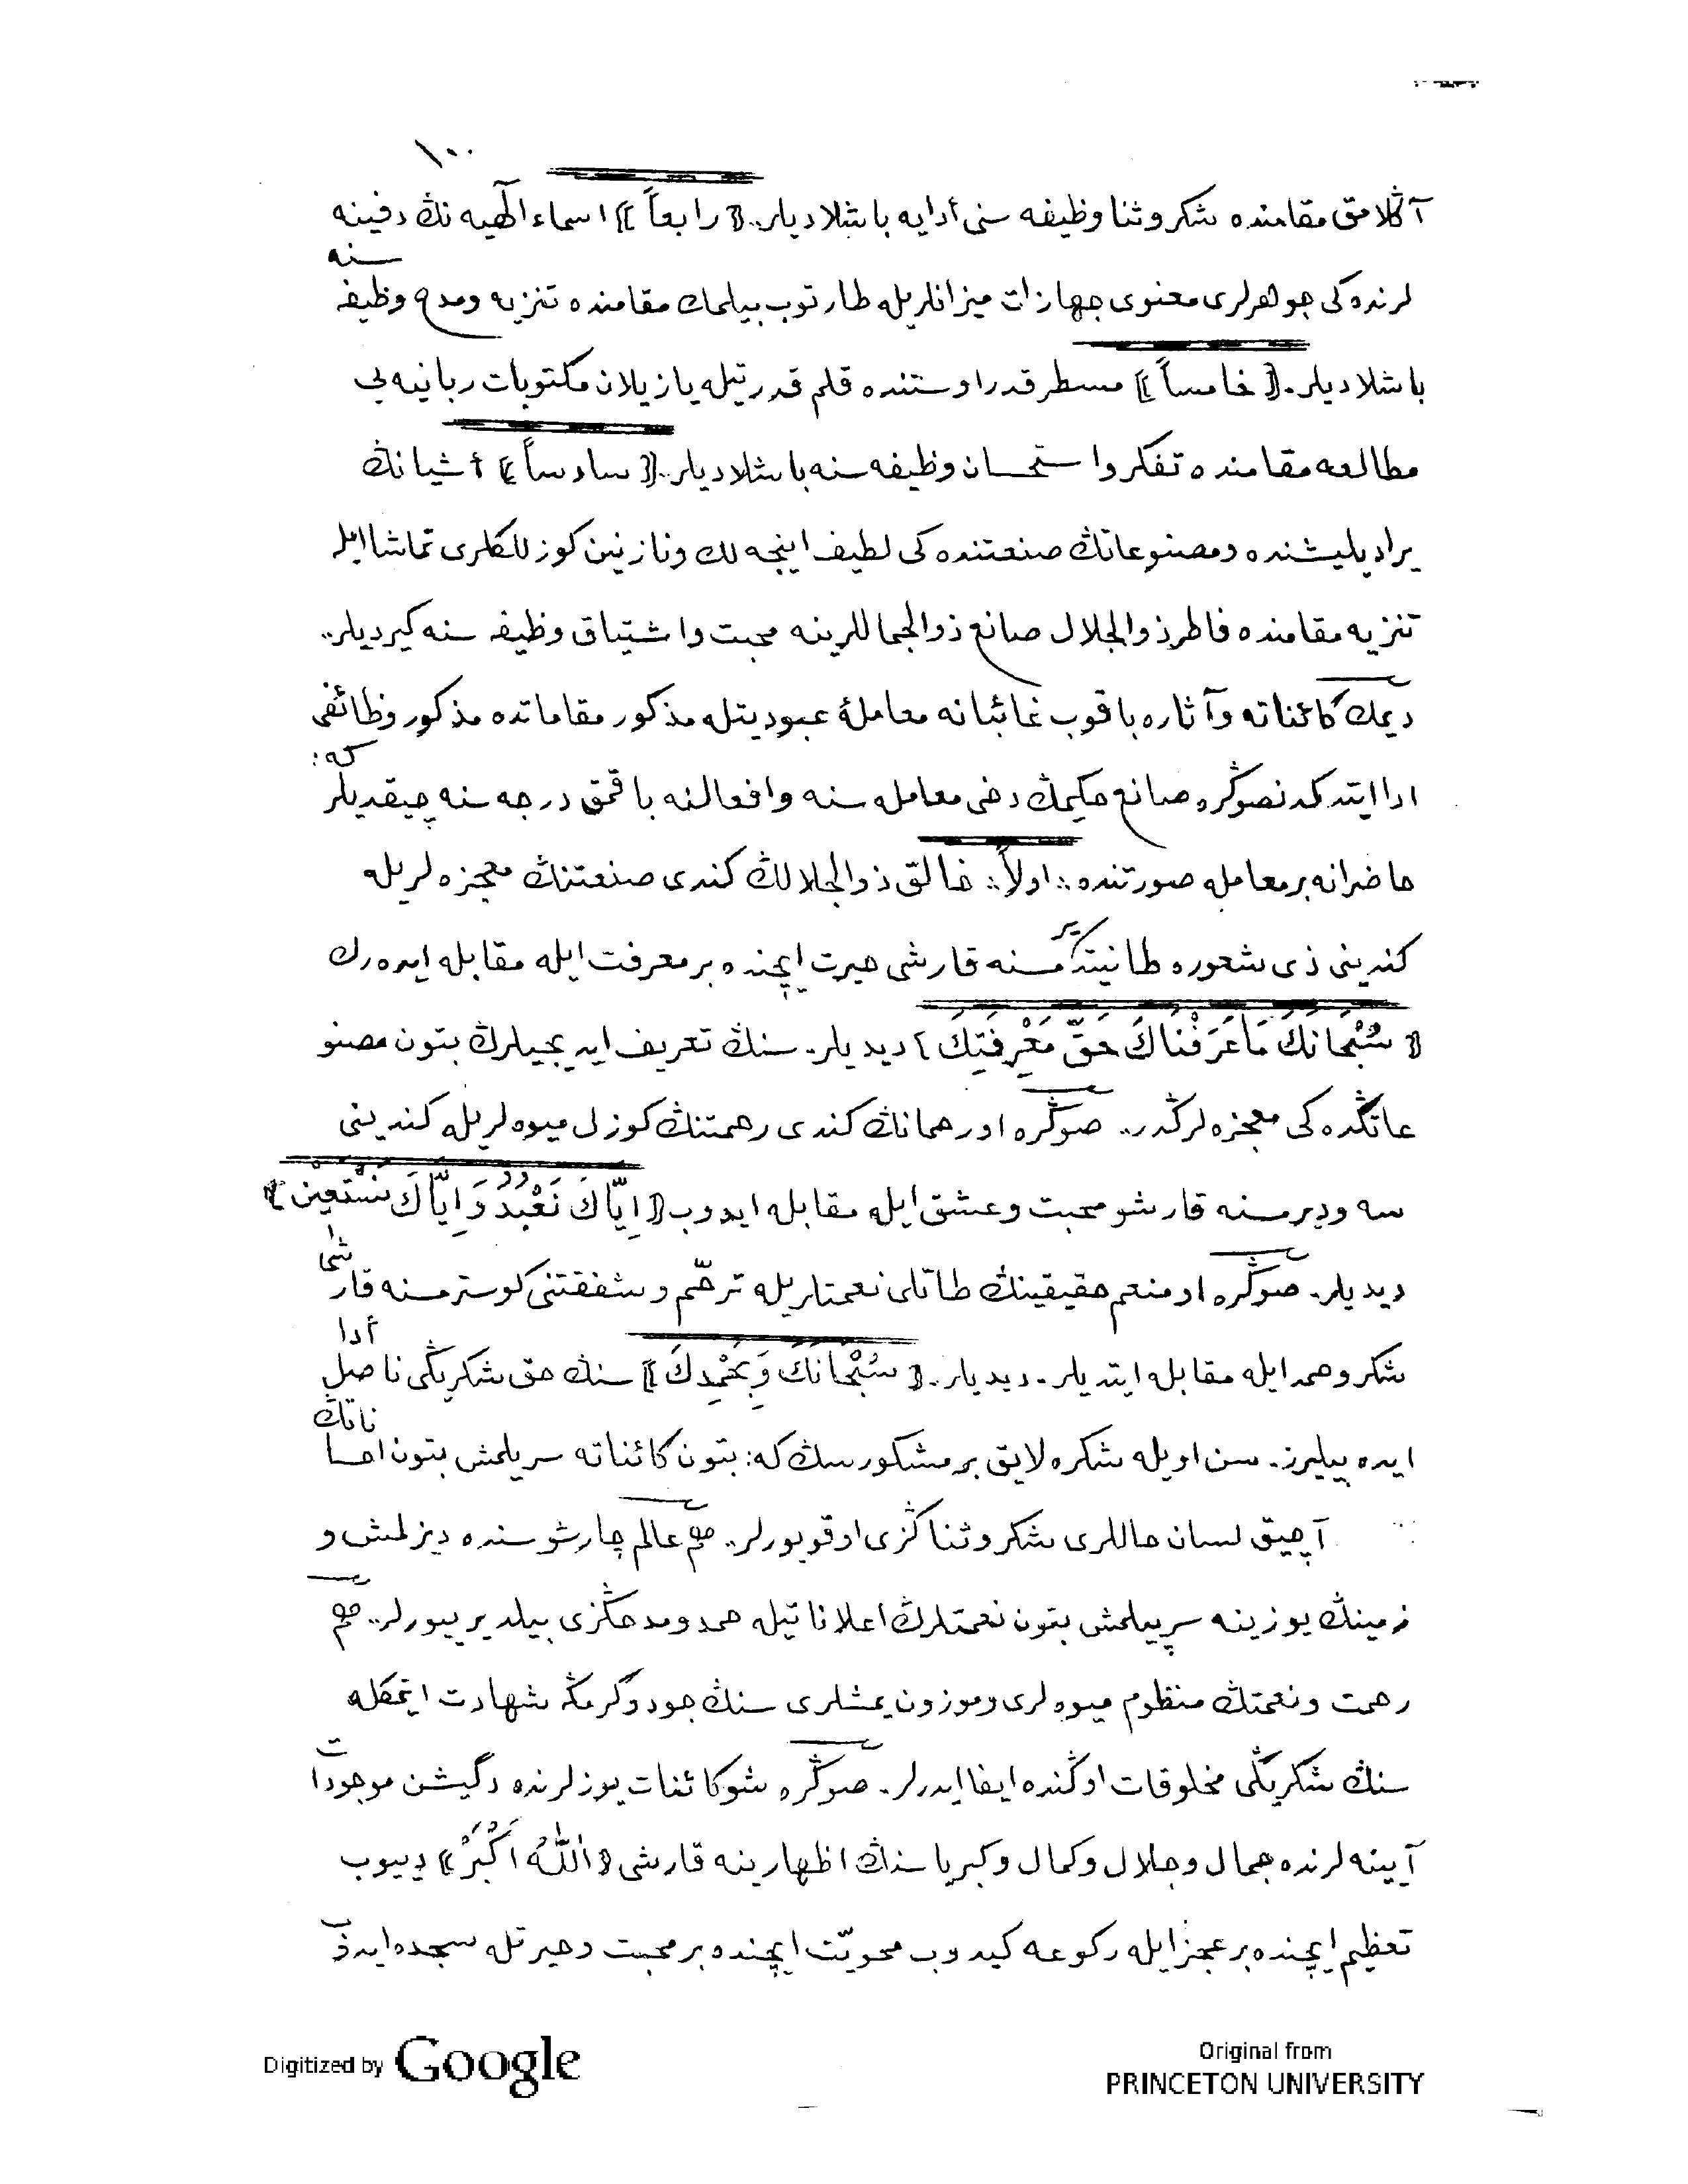 ١٠٠
آڭلامق مقامنده شكر وثنا وظيفه سنى أدايه باشلاديلر.. ﴿رابعاً﴾ اسماء الٓهيه نڭ دفينه
لرنده كى جوهرلرى معنوى جهازات ميزانلريله طارتوب بيلمك مقامنده تنزيه ومدح وظيفه سنه
باشلاديلر. ﴿خامساً﴾ مسطر قدر اوستنده قلم قدرتيله يازيلان مكتوبات ربانيه يى
مطالعه مقامنده تفكر واستحسان وظيفه سنه باشلاديلر.. ﴿سادساً﴾ أشيانڭ
يراديليشنده ومصنوعاتڭ صنعتنده كى لطيف اينجه لك ونازنين كوزللكلرى تماشا ايله
تنزيه مقامنده فاطر ذوالجلال صانع ذوالجماللرينه محبت واشتياق وظيفه سنه كيرديلر..
ديمك كائناته وآثاره باقوب غائبانه معاملۀ عبوديتله مذكور مقاماتده مذكور وظائفى
ادا ايتدكدنصوڭره صانع حكيمڭ دخى معامله سنه وافعالنه باقمق درجه سنه چيقديلر كه:
حاضرانه بر معامله صورتنده :: اولاً :: خالق ذوالجلالڭ كندى صنعتنڭ معجزه لريله
كندينى ذى شعوره طانيتديرمسنه قارشى حيرت ايچنده بر معرفت ايله مقابله ايده رك
﴿سُبْحَانَكَ مَا عَرَفْنَاكَ حَقَّ مَعْرِفَتِكَ﴾ ديديلر. سنڭ تعريف ايديجيلرڭ بتون مصنو
عاتڭده كى معجزه لرڭدر.. صوڭره او رحمانڭ كندى رحمتنڭ كوزل ميوه لريله كندينى
سه وديرمسنه قارشو محبت وعشق ايله مقابله ايدوب ﴿اِيَّاكَ نَعْبُدُ وَاِيَّاكَ نَسْتَعِينُ﴾
ديديلر. صوڭره او منعم حقيقينڭ طاتلى نعمتلريله ترحّم وشفقتنى كوسترمسنه قارشى
شكر وحمد ايله مقابله ايتديلر. ديديلر. ﴿سُبْحَانَكَ وَبِحَمْدِكَ﴾ سنڭ حق شكريڭى ناصل أدا
ايده بيليرز. سن اويله شكره لايق بر مشكورسڭ كه: بتون كائناته سريلمش بتون احساناتڭ
آچيق لسان حاللرى شكر وثناڭزى اوقويورلر.. هم عالم چارشوسنده ديزلمش و
زمينڭ يوزينه سرپيلمش بتون نعمتلرڭ اعلاناتيله حمد ومدحڭزى بيلديرييورلر.. هم
رحمت ونعمتڭ منظوم ميوه لرى وموزون يمشلرى سنڭ جود وكرمڭه شهادت ايتمكله
سنڭ شكريڭى مخلوقات اوڭنده ايفا ايدرلر. صوڭره شو كائنات يوزلرنده دگيشن موجودات
آيينه لرنده جمال وجلال وكمال وكبرياسنڭ اظهارينه قارشى ﴿اَللّٰهُ اَكْبَرُ﴾ دييوب
تعظيم ايچنده بر عجز ايله ركوعه كيدوب محويّت ايچنده بر محبت وحيرتله سجده ايدوب
Digitized by Google
Original from
PRINCETON UNIVERSITY